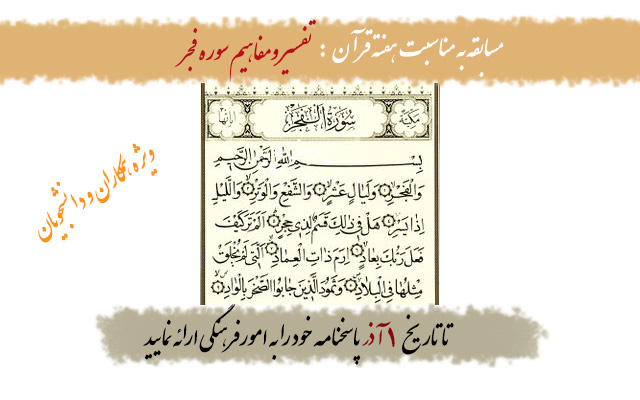 مسابقه به مناسبت هفته قرآن : تفسیر و مفاهیم سوره فجر
مکیة
سُورَةُ الْفَجْرِ
ویژه همکاران و دانشجویان
بِسْمِ اللهِ الرَّحْمٰنِ الرَّحیمِ
وَالْفَجْرِ ۱ وَلَیالٍ عَشْرٍ ۲ وَالشَّفْعِ وَالْوَتْرِ ۳ وَاللَّیْلِ
اِذا یَسْرِ ۴ هَلْ فی ذٰلِکَ قَسَمٌ لِذی حِجْرٍ ۵ اَلَمْ تَرَ کَیْفَ
فَعَلَ رَبُّکَ بِعادٍ ۶ اِرَمَ ذاتِ الْعِمادِ ۷ اَلَّتی لَمْ یُخْلَقْ
مِثْلُها فِی الْبِلادِ ۸ وَثَمُودَ الَّذینَ جابُوا الصَّخْرَ بِالْوادِ ۹
تا تاریخ ۱ آذر پاسخنامه خود را به امور فرهنگی ارائه نمایید